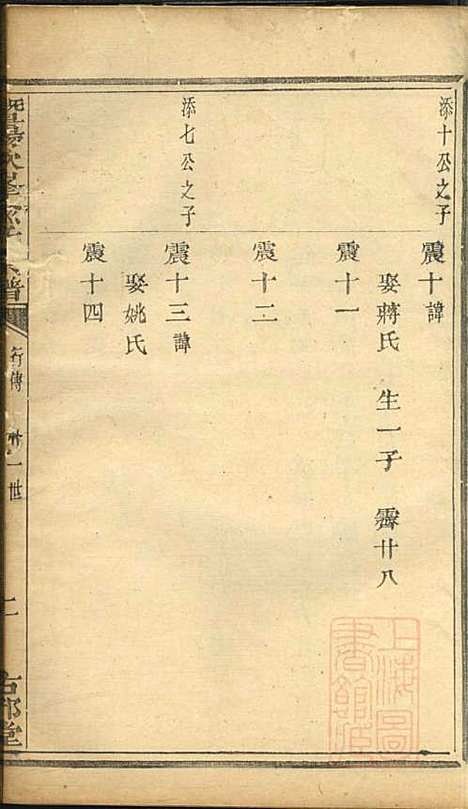 添十公之子
震十諱
娶蔣氏 生一子 霽廿八
震十一
震十二
添七公之子
震十三諱
娶姚氏
震十四
行傳 廿一世
上海圖書館藏